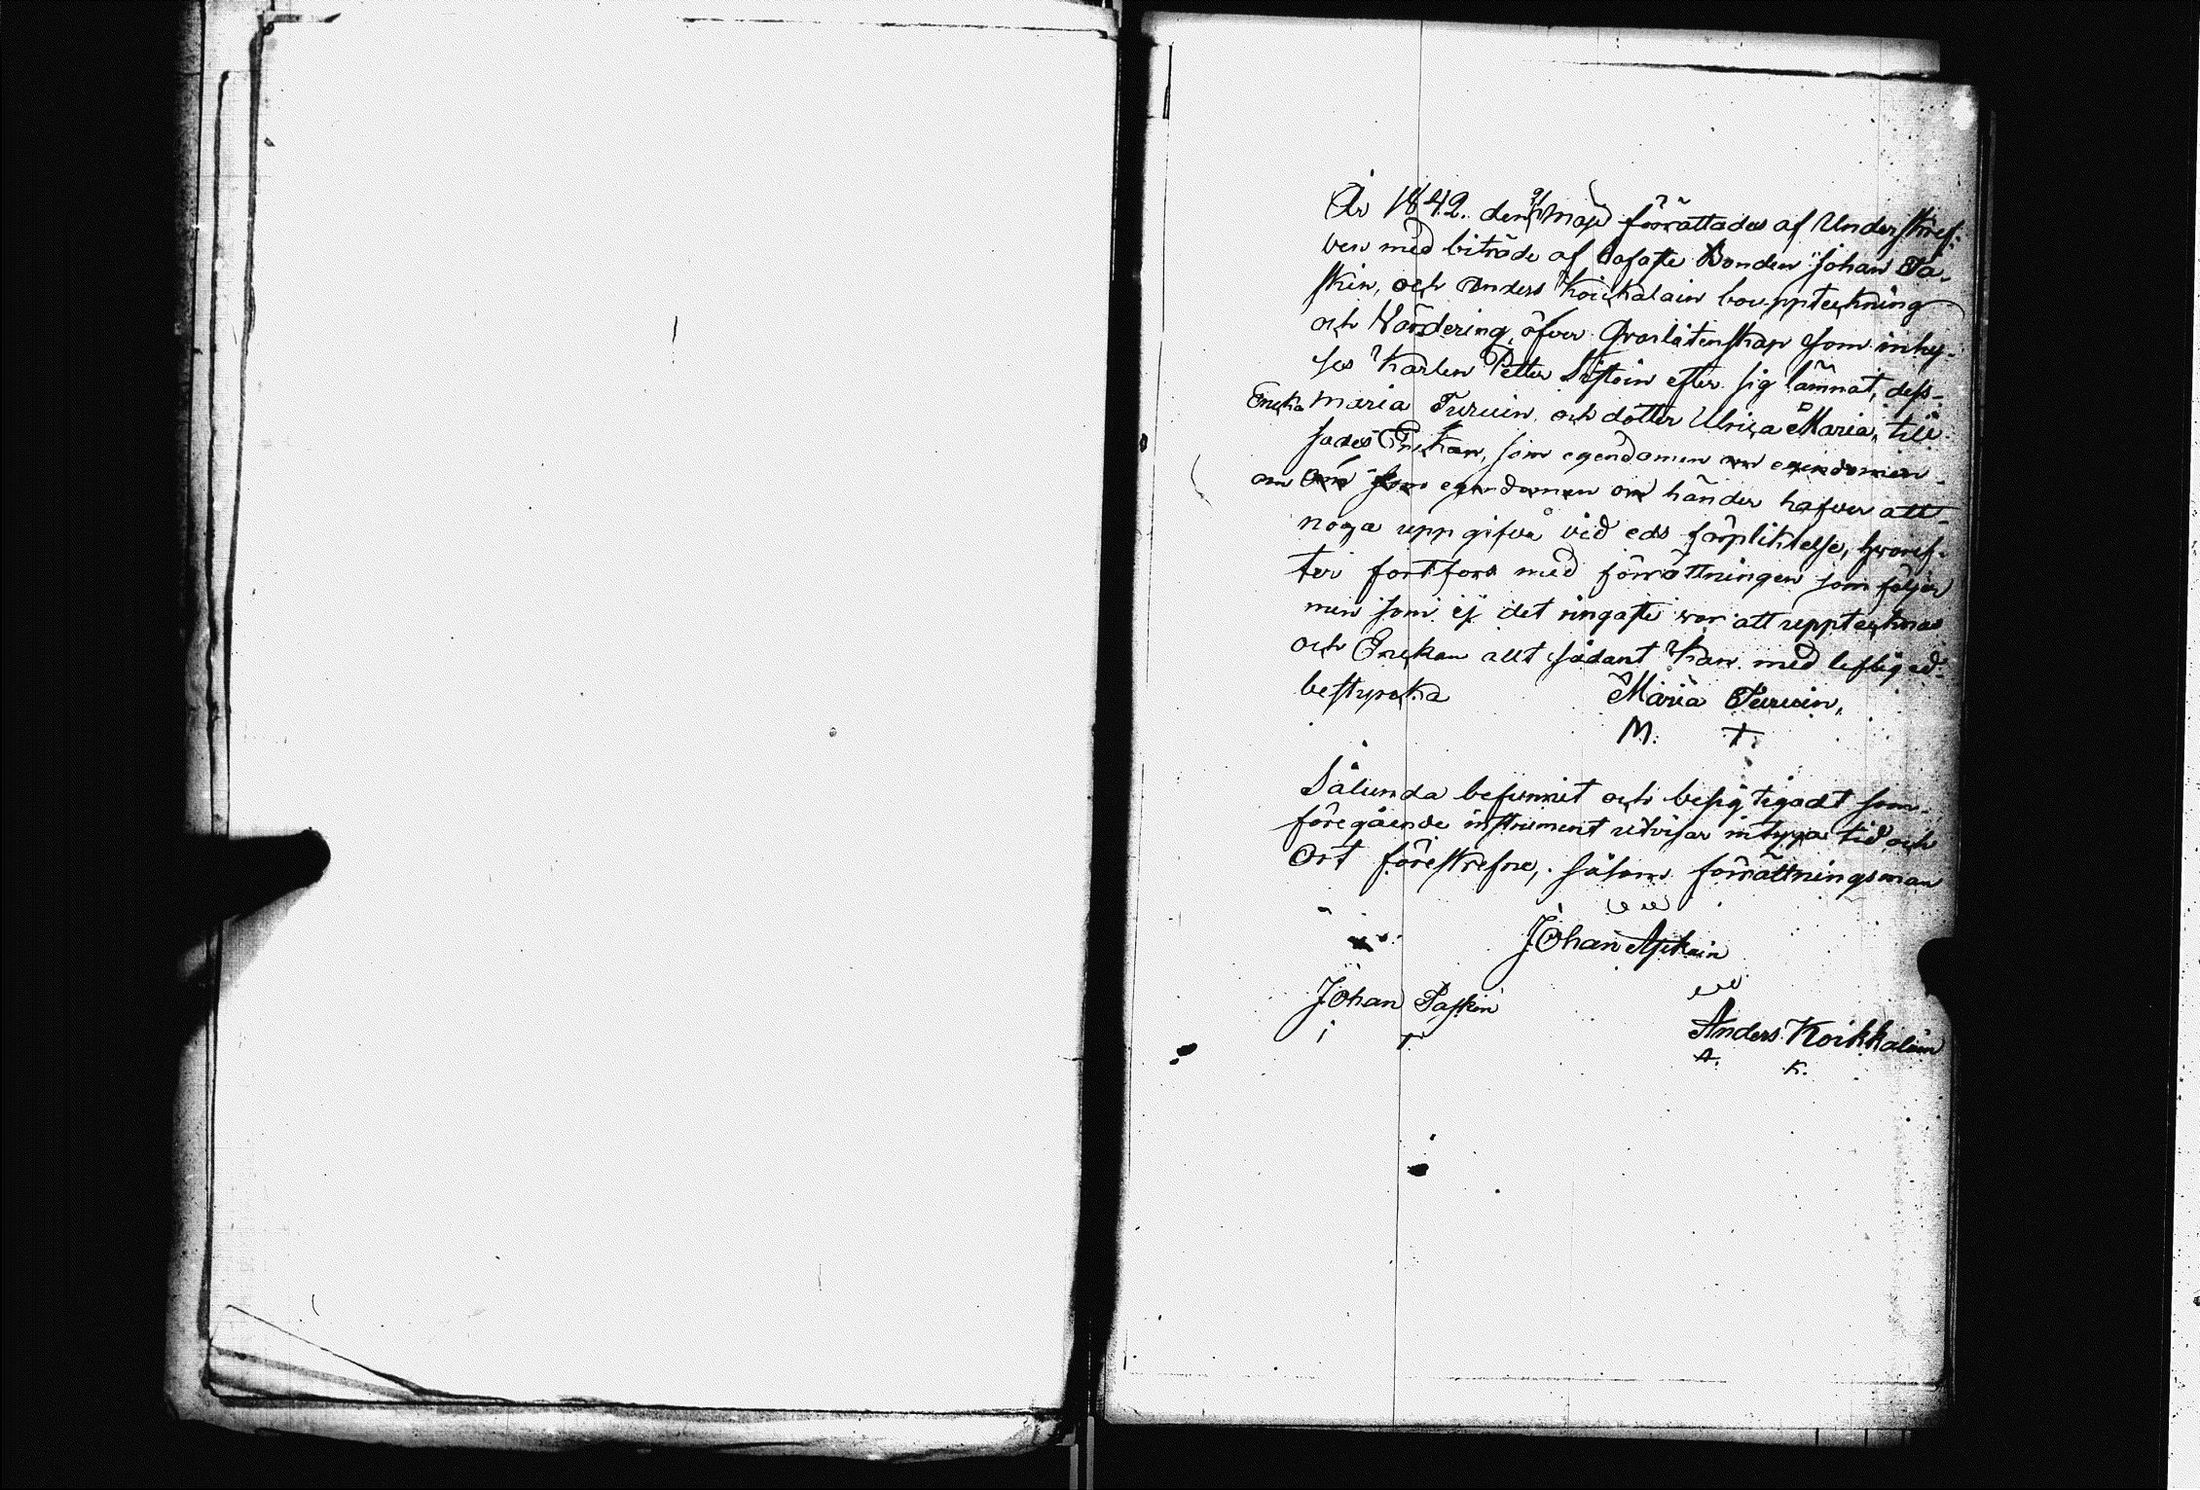 År 1842. den 9/ Maji förrättades af Underskref:
ven med biträde af Bofaste Bonden Johan Pa-
skin, och Anders Koickalain bouppteckning
och Värdering, öfver Qvarlåtenskap som inhy-
ses Karlen Petter efter sig lämnat, dess
Encka Maria Turuin och dotter Ulrica Maria, till
sades Enkan, som egendomen om egendomen
om om som egendomen om händer hafver att
noga uppgifva vid eds förpliktelse, hvaref-
ter fortfors med förrättningen som följer
men som ej det ringaste var att uppteckna
och Enckan allt sådant kan med liflig ed
bestyrcka Maria Turuin,
M. T.
Sålunda befunnit och besigtigadt som
föregående instrument utvisar intyga tid och
Ort föreskrefne, såsom förrättningsman
Johan
Johan Paskin
i P
Anders Koikkalain
A. K.